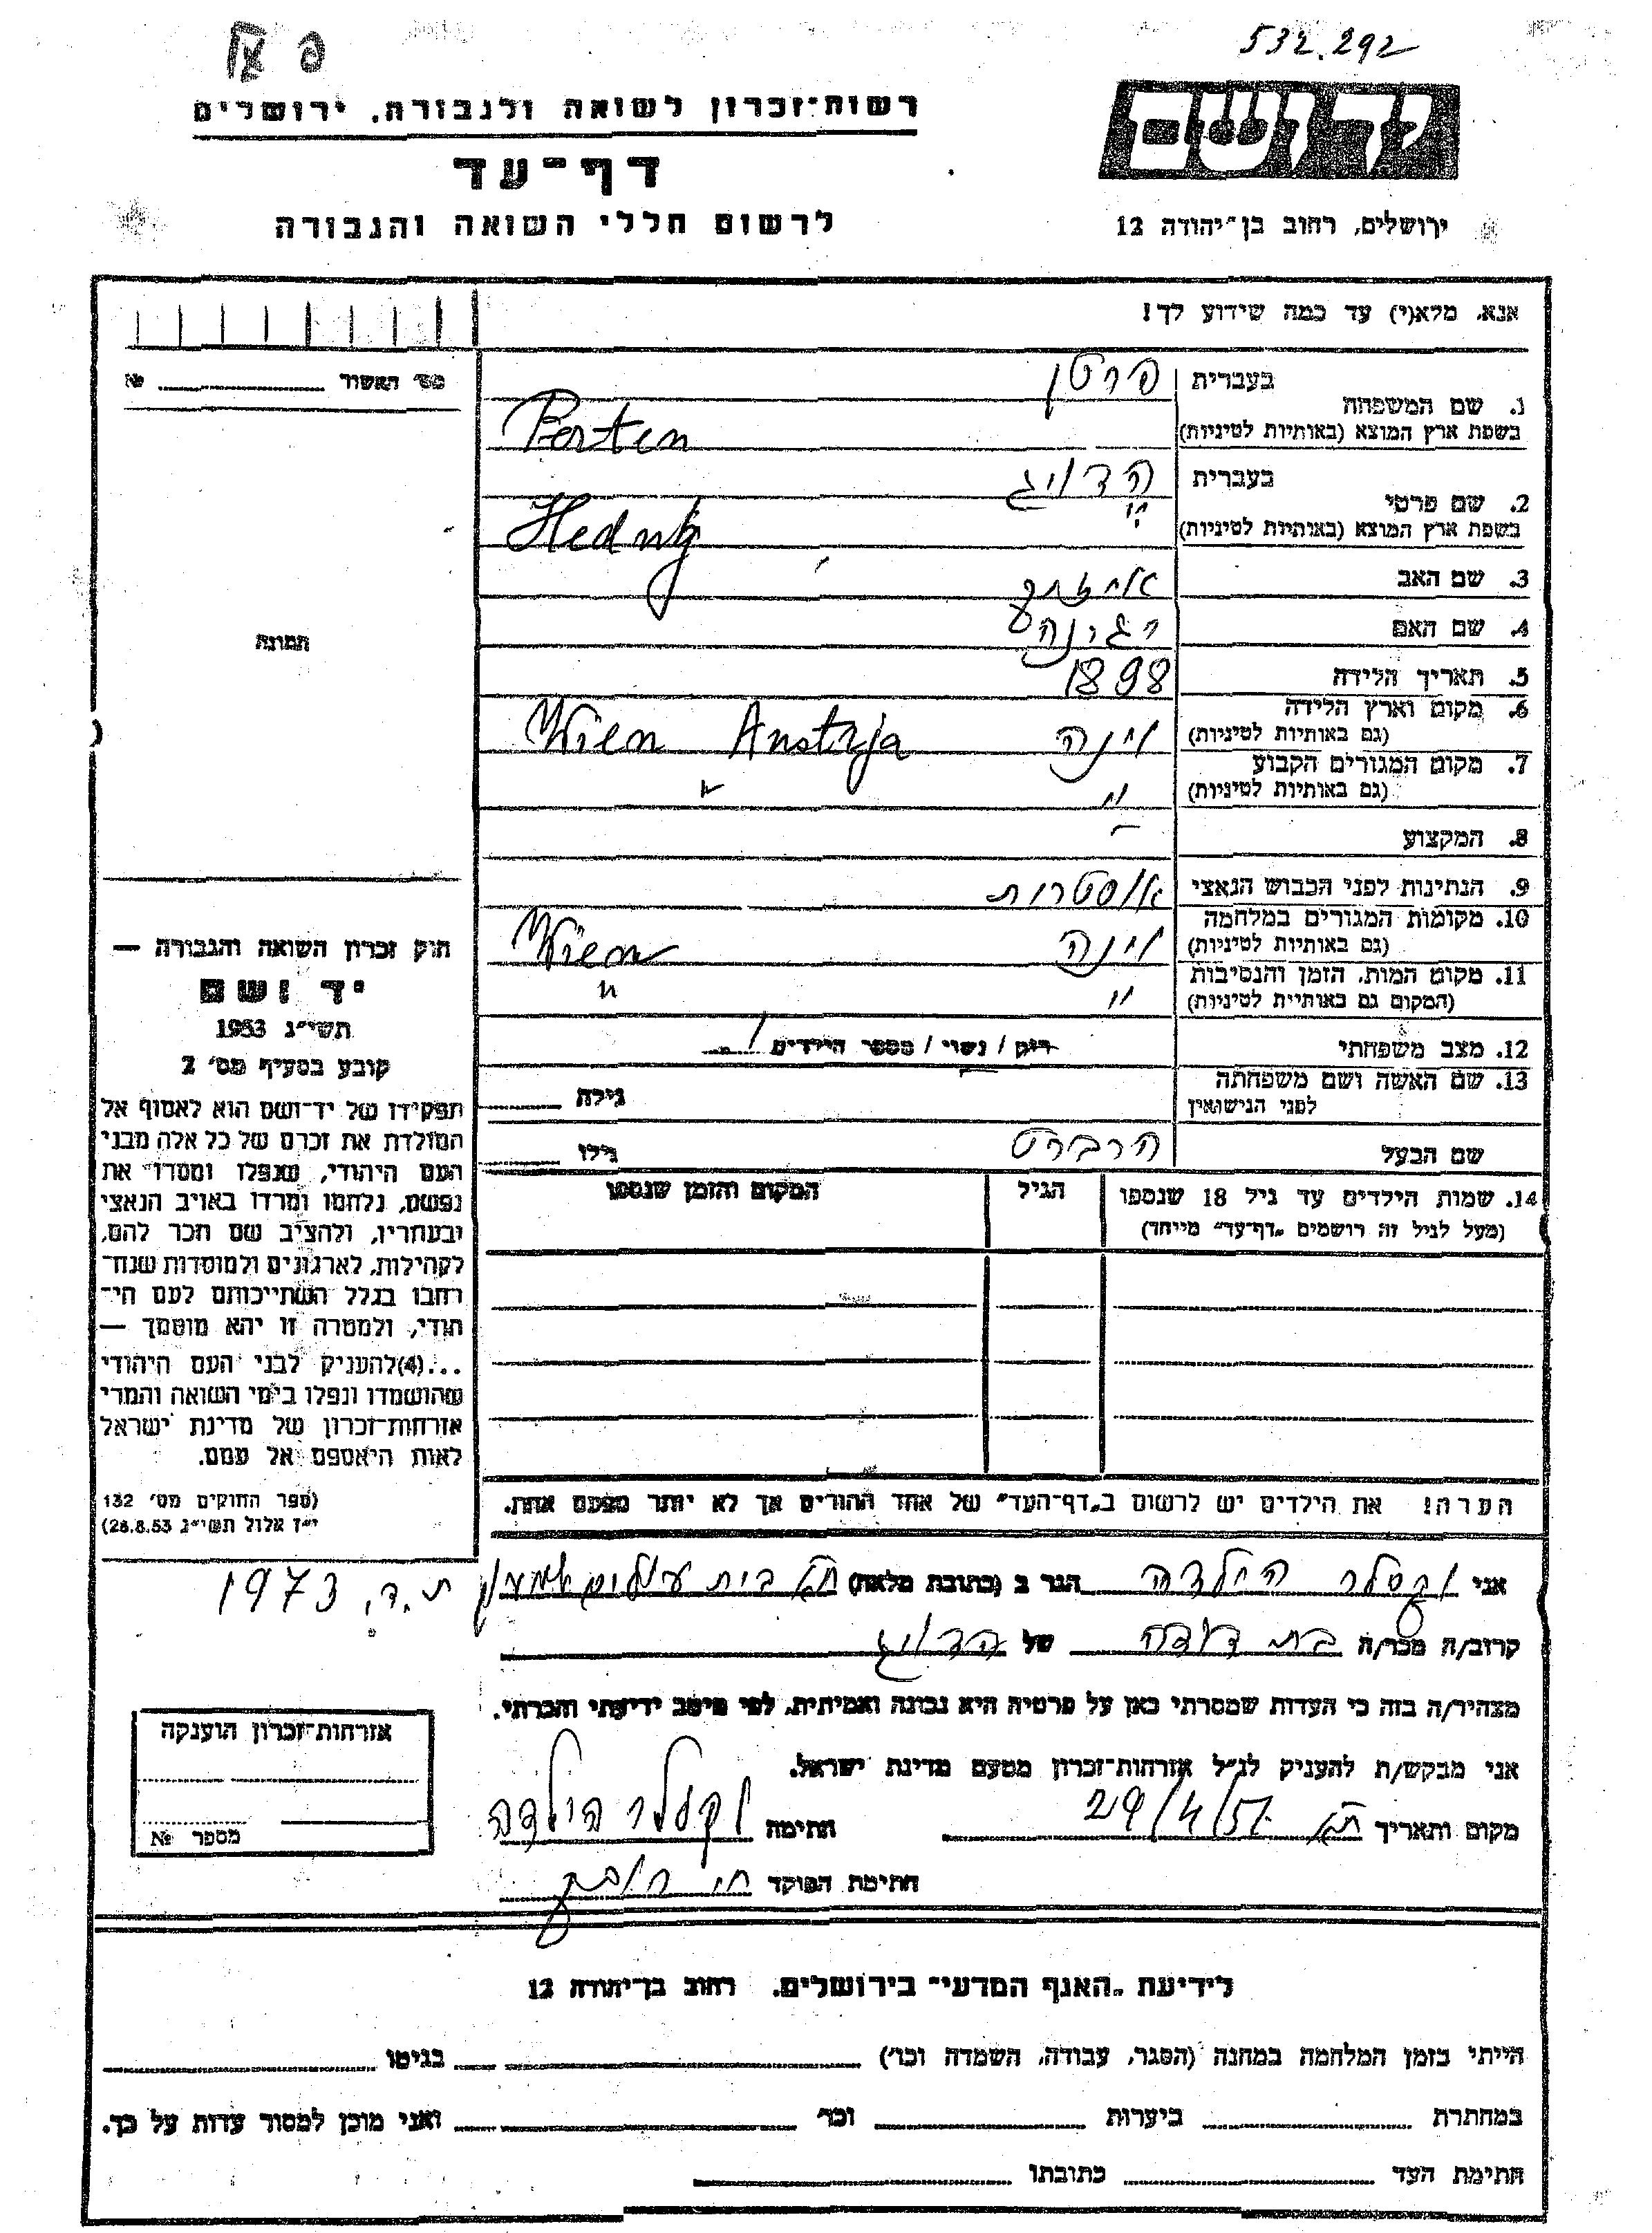 532.292
יד ושם
רשות־זכרון לשואה ולגבורה, ירושלים
דף־עד
לרשום חללי השואה והגבורה
ירושלים, רחוב בן־יהודה 12
אנא, מלא(י) עד כמה שידוע לך!
מס׳ האשור № 
1. שם המשפחה
בעברית פרטן
בשפת ארץ המוצא (באותיות לטיניות) Porten
2. שם פרטי
בעברית הדויג
בשפת ארץ המוצא (באותיות לטיניות) Hedwig
3. שם האב
4. שם האם רגינה
5. תאריך הלידה 1898
6. מקום וארץ הלידה
(גם באותיות לטיניות) וינה Wien Austrja
7. מקום המגורים הקבוע
(גם באותיות לטיניות) " "
8. המקצוע —
9. הנתינות לפני הכבוש הנאצי אוסטרית
10. מקומות המגורים במלחמה
(גם באותיות לטיניות) וינה Wien
11. מקום המות, הזמן והנסיבות
(המקום גם באותיות לטיניות) " "
12. מצב משפחתי רוק / נשוי / מספר הילדים 1
13. שם האשה ושם משפחתה
לפני הנישואין — גילה
שם הבעל הרברט גילו
14. שמות הילדים עד גיל 18 שנספו
(מעל לגיל זה רושמים „דף־עד” מיוחד)
הגיל
המקום והזמן שנספו
הערה! את הילדים יש לרשום ב„דף־העד” של אחד ההורים אך לא יותר מפעם אחת.
תמונה
חוק זכרון השואה והגבורה —
יד ושם
תשי״ג 1953
קובע בסעיף מס׳ 2
תפקידו של יד־ושם הוא לאסוף אל
המולדת את זכרם של כל אלה מבני
העם היהודי, שנפלו ומסרו את
נפשם, נלחמו ומרדו באויב הנאצי
ובעוזריו, ולהציב שם וזכר להם,
לקהילות, לארגונים ולמוסדות שנח־
רבו בגלל השתייכותם לעם הי־
הודי, ולמטרה זו יהא מוסמך —
...(4)להעניק לבני העם היהודי
שהושמדו ונפלו בימי השואה והמרי
אזרחות־זכרון של מדינת ישראל
לאות היאספם אל עמם.
(ספר החוקים מס׳ 132
י״ז אלול תשי״ג 28.8.53)
אני וקסלר הילדה הגר ב (כתובת מלאה) בית עולים ת.ד. 1973
קרוב/ה מכר/ה בת דודה של הדויג
מצהיר/ה בזה כי העדות שמסרתי כאן על פרטיה היא נכונה ואמיתית, לפי מיטב ידיעתי והכרתי.
אני מבקש/ת להעניק לנ״ל אזרחות־זכרון מטעם מדינת ישראל.
מקום ותאריך 29/4/57 חתימה וקסלר הילדה
חתימת הפוקד
אזרחות־זכרון הוענקה
מספר №
לידיעת „האגף המדעי” בירושלים, רחוב בן־יהודה 12
הייתי בזמן המלחמה במחנה (הסגר, עבודה, השמדה וכו׳) בגיטו
במחתרת ביערות וכו׳ ואני מוכן למסור עדות על כך.
חתימת העד כתובתו